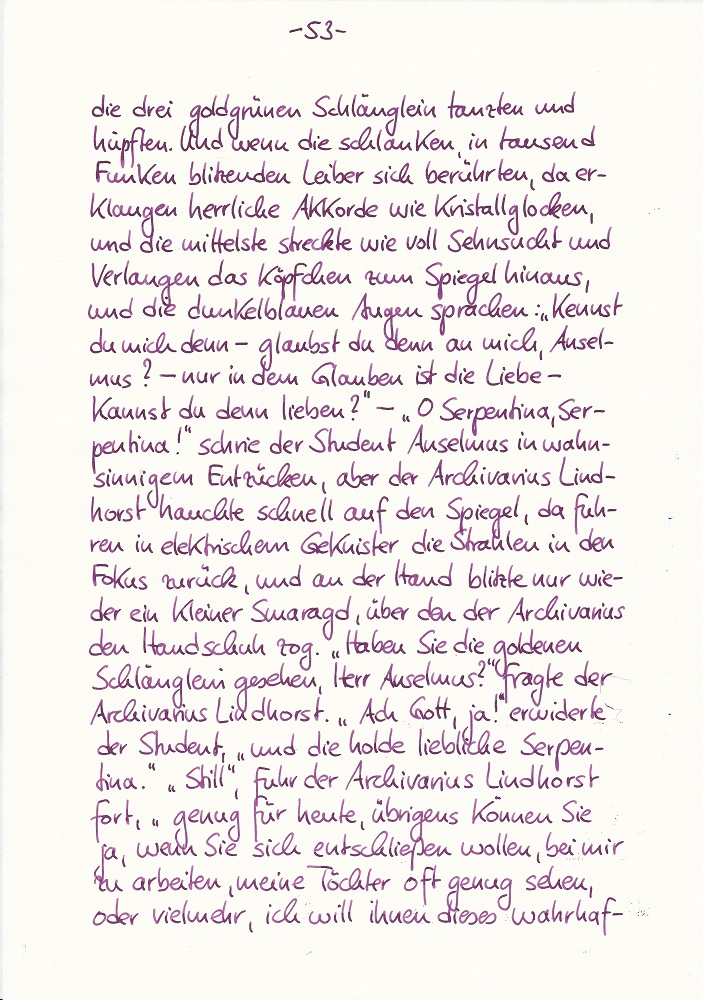 -53-
die drei goldgrünen Schlänglein tanzten und
hüpften. Und wenn die schlanken, in tausend
Funken blitzenden Leiber sich berührten, da er-
klangen herrliche Akkorde wie Kristallglocken,
und die mittelste streckte wie voll Sehnsucht und
Verlangen das Köpfchen zum Spiegel hinaus,
und die dunkelblauen Augen sprachen: „Kennst
du mich denn – glaubst du denn an mich, Ansel-
mus? – nur in dem Glauben ist die Liebe –
kannst du denn lieben?" – „O Serpentina, Ser-
pentina!" schrie der Student Anselmus in wahn-
sinnigem Entzücken, aber der Archivarius Lind-
horst hauchte schnell auf den Spiegel, da fuh-
ren in elektrischem Geknister die Strahlen in den
Fokus zurück, und an der Hand blitzte nur wie-
der ein kleiner Smaragd, über den der Archivarius
den Handschuh zog. „Haben Sie die goldenen
Schlänglein gesehen, Herr Anselmus?" fragte der
Archivarius Lindhorst. „Ach Gott, ja!" erwiderte
der Student, „und die holde liebliche Serpen-
tina." „Still", fuhr der Archivarius Lindhorst
fort, „genug für heute, übrigens können Sie
ja, wenn Sie sich entschließen wollen, bei mir
zu arbeiten, meine Töchter oft genug sehen,
oder vielmehr, ich will ihnen dieses wahrhaf-